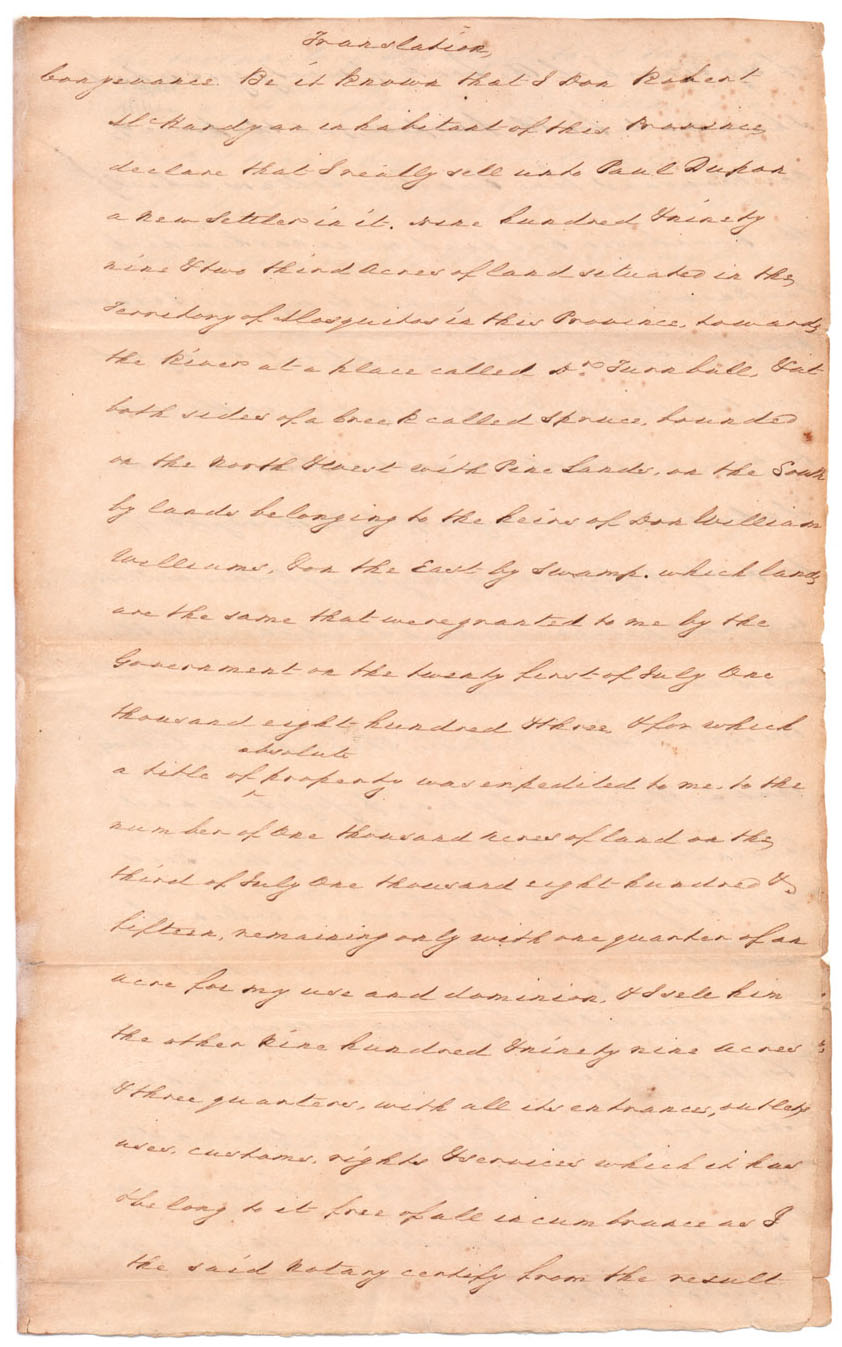 Translation,
Conveyance. Be it known that I Don Robert
McHardy an inhabitant of this Province,
declare that I really sell unto Paul Dupon
a new Settler in it. Nine hundred & ninety
nine & two third Acres of land situated in the
Territory of Mosquitos in this Province, towards
the River at a place called Dr. Turnbull, & at
both sides of a Creek called Spruce, bounded
on the North & west with Pine Lands, on the South
by lands belonging to the heirs of Don William
Williams, & on the East by Swamp. which lands
are the same that were granted to me by the
Government on the twenty first of July One
thousand eight hundred & three, & for which
absolute
a title of property was expedited to me, to the
number of One thousand acres of land on the
third of July One thousand eight hundred &
fifteen, remaining only with one quarter of an
acre for my use and dominion, & I sell him
the other Nine hundred & ninety nine acres
& three quarters, with all its entrances, outlets
uses, customs, rights & services which it has
& belong to it free of all incumbrance as I
the said Notary certify from the result